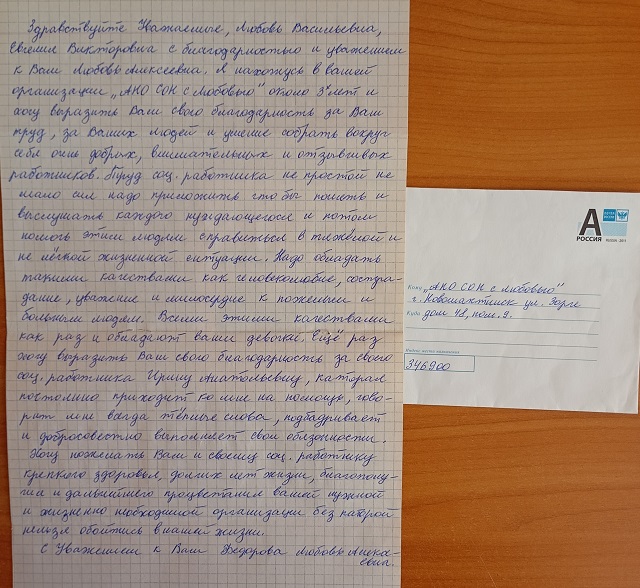 Здравствуйте Уважаемые, Любовь Васильевна,
Евгения Викторовна с благодарностью и уважением
к Вам Любовь Алексеевна. Я нахожусь в вашей
организации „АНО СОН с Любовью" около 3х лет и
хочу выразить Вам свою благодарность за Ваш
труд, за Ваших людей и умение собрать вокруг
себя очень добрых, внимательных и отзывчивых
работников. Труд соц. работника не простой не
мало сил надо приложить что бы понять и
выслушать каждого нуждающегося и потом
помочь этим людям справиться в тяжёлой и
не лёгкой жизненной ситуации. Надо обладать
такими качествами как человеколюбие, состра-
дание, уважение и милосердие к пожилым и
больным людям. Всеми этими качествами
как раз и обладают ваши девочки. Ещё раз
хочу выразить Вам свою благодарность за своего
соц. работника Ирину Анатольевну, каторая
постояно приходит ко мне на помощь, гово-
рит мне всегда тёплые слова, подбадривает
и добросовестно выполняет свои обязонности.
Хочу пожелать Вам и своему соц. работнику
крепкого здоровья, долгих лет жизни, благополу-
чия и дальнейшего процветания вашей нужной
и жизненно необходимой организации без каторой
нельзя обойтись в нашей жизни.
С Уважением к Вам Федорова Любовь Алексе-
евна.
А
РОССИЯ
ПОЧТА РОССИИ
Кому „АНО СОН с Любовью"
г. Новошахтинск ул. Зорге
Куда дом 48, пом. 9.
346900